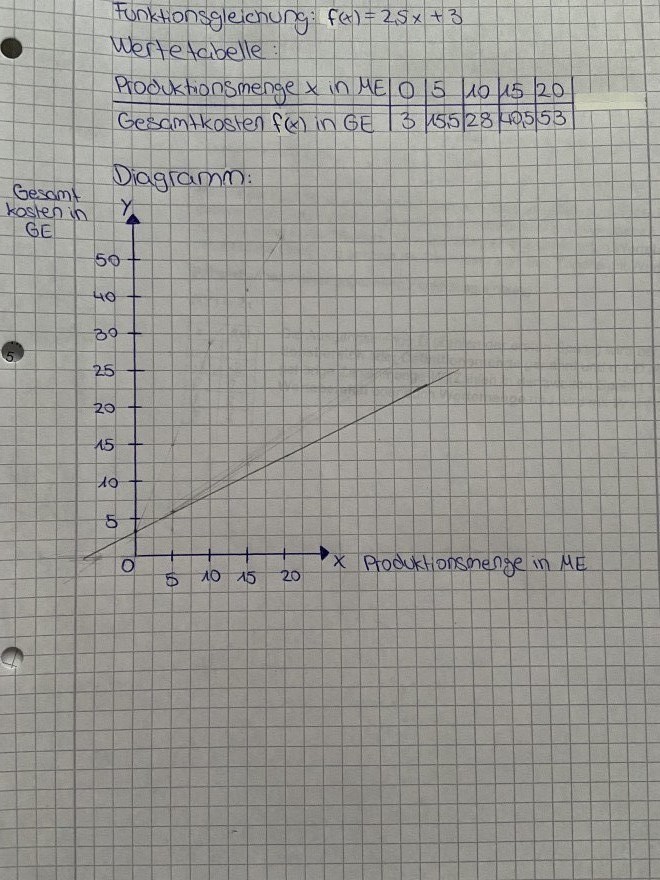 Funktionsgleichung: f(x) = 2,5x + 3
Wertetabelle:
Produktionsmenge x in ME 0 5 10 15 20
Gesamtkosten f(x) in GE 3 15,5 28 40,5 53
Diagramm:
Gesamt
kosten in
GE
Y
50
40
30
25
20
15
10
5
0
5 10 15 20
X Produktionsmenge in ME
5